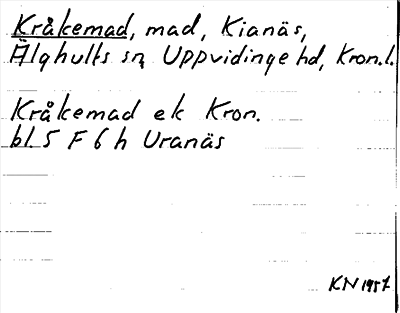 Kråkemad, mad, Kianäs,
Älghults sn, Uppvidinge hd, Kron.l.
Kråkemad ek Kron.
bl. 5 F 6 h Uranäs
KN 1957